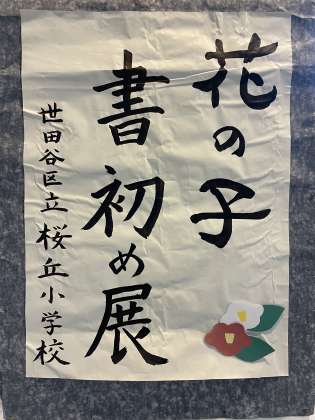 花の子
書初め展
世田谷区立桜丘小学校